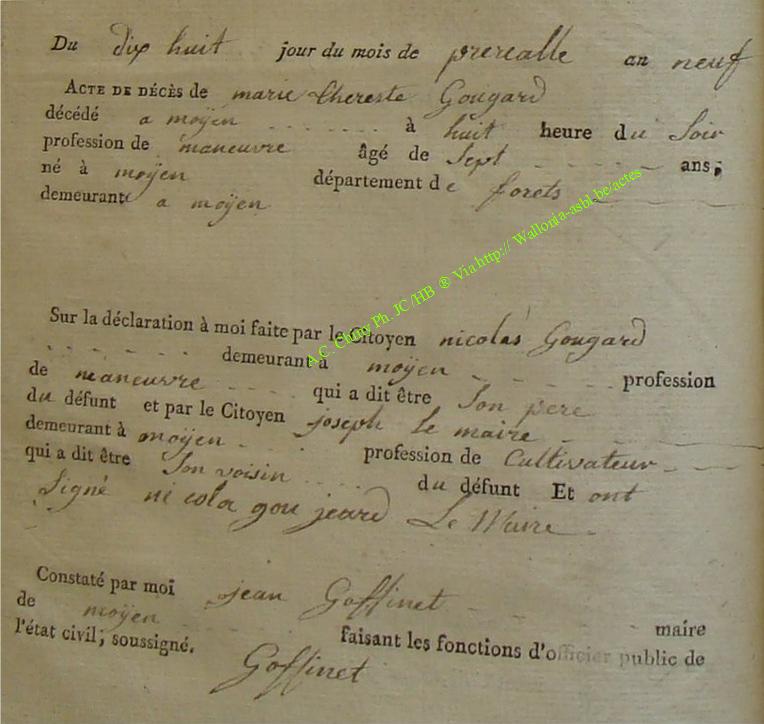 Du dix huit jour du mois de prerealle an neuf
ACTE DE DÉCÈS de marie thereste Gougard
décédé a moÿen à huit heure du Soir
profession de maneuvre âgé de Sept ans;
né à moÿen département de forets
demeurant a moÿen
Sur la déclaration à moi faite par le Citoyen nicolas Gougard
demeurant à moÿen profession
de maneuvre qui a dit être Son pere
du défunt et par le Citoyen joseph le maire
demeurant à moÿen profession de Cultivateur
qui a dit être Son voisin du défunt Et ont
Signé nicola gou jeard Le Maire
Constaté par moi jean Goffinet maire
de moÿen faisant les fonctions d'officier public de
l'état civil; soussigné.
Goffinet
A.C. Chiny Ph. JC/HB ® Via http:// Wallonia-asbl.be/actes